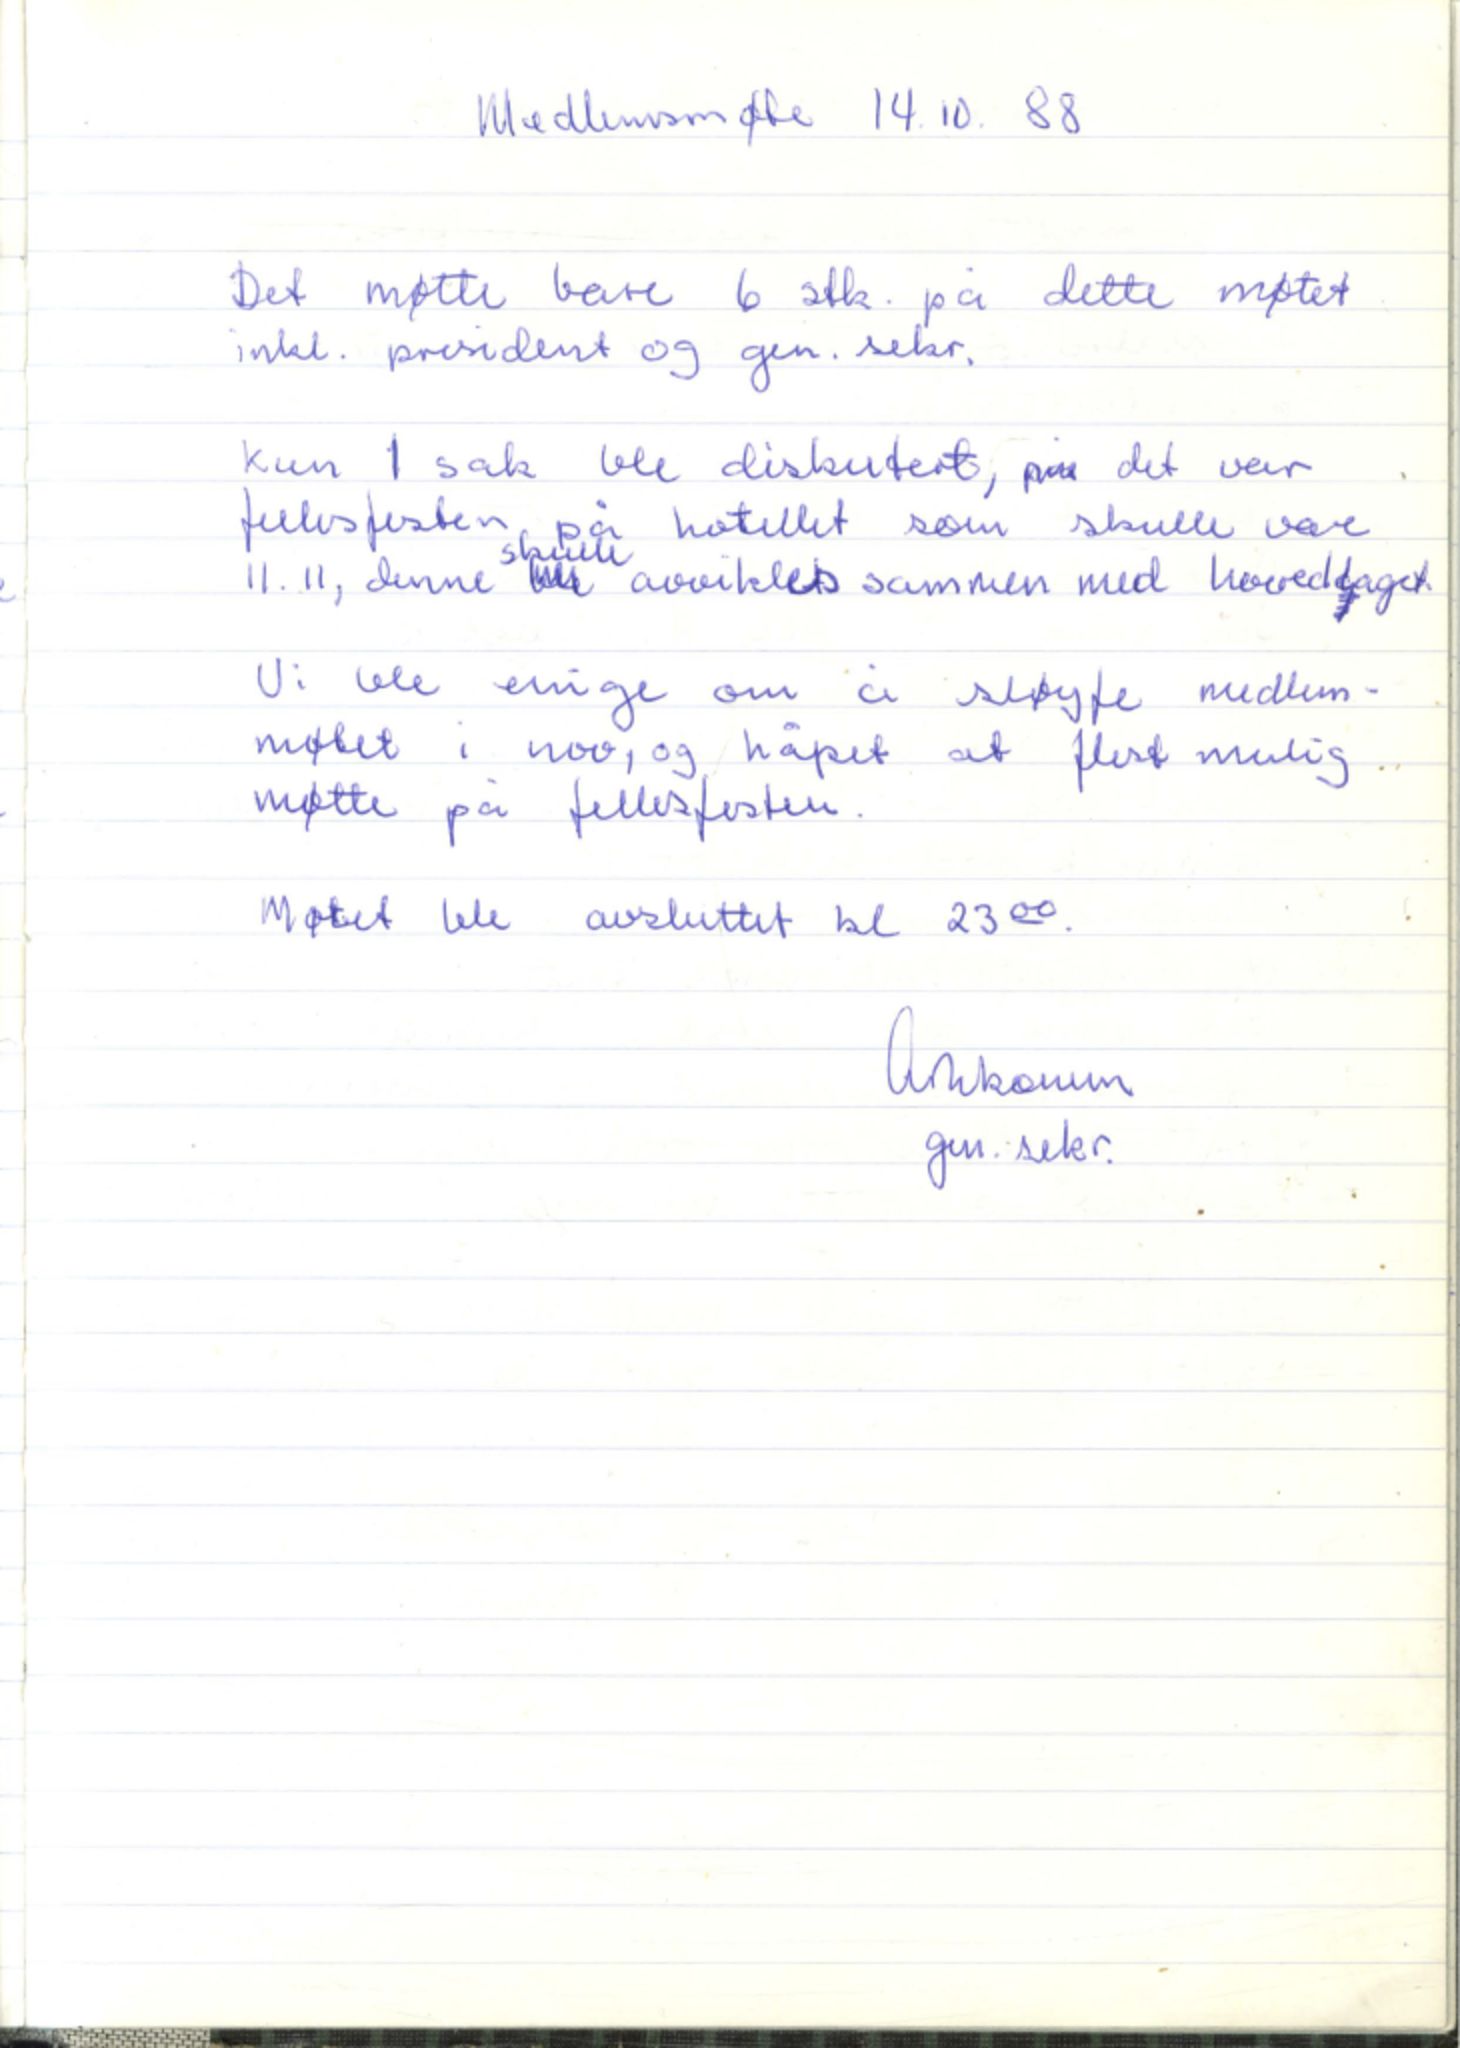 Medlemsmøte 14.10.88
Det møtte bare 6 stk. på dette møtet
inkl. president og gen. sekr.
Kun 1 sak ble diskutert, det var
fellesfesten på hotellet som skulle være
11.11, denne skulle avvikles sammen med hovedlaget.
Vi ble enige om å sløyfe medlem-
møtet i nov, og håpet at flest mulig
møtte på fellesfesten.
Møtet ble avsluttet kl 23 00.
gen. sekr.